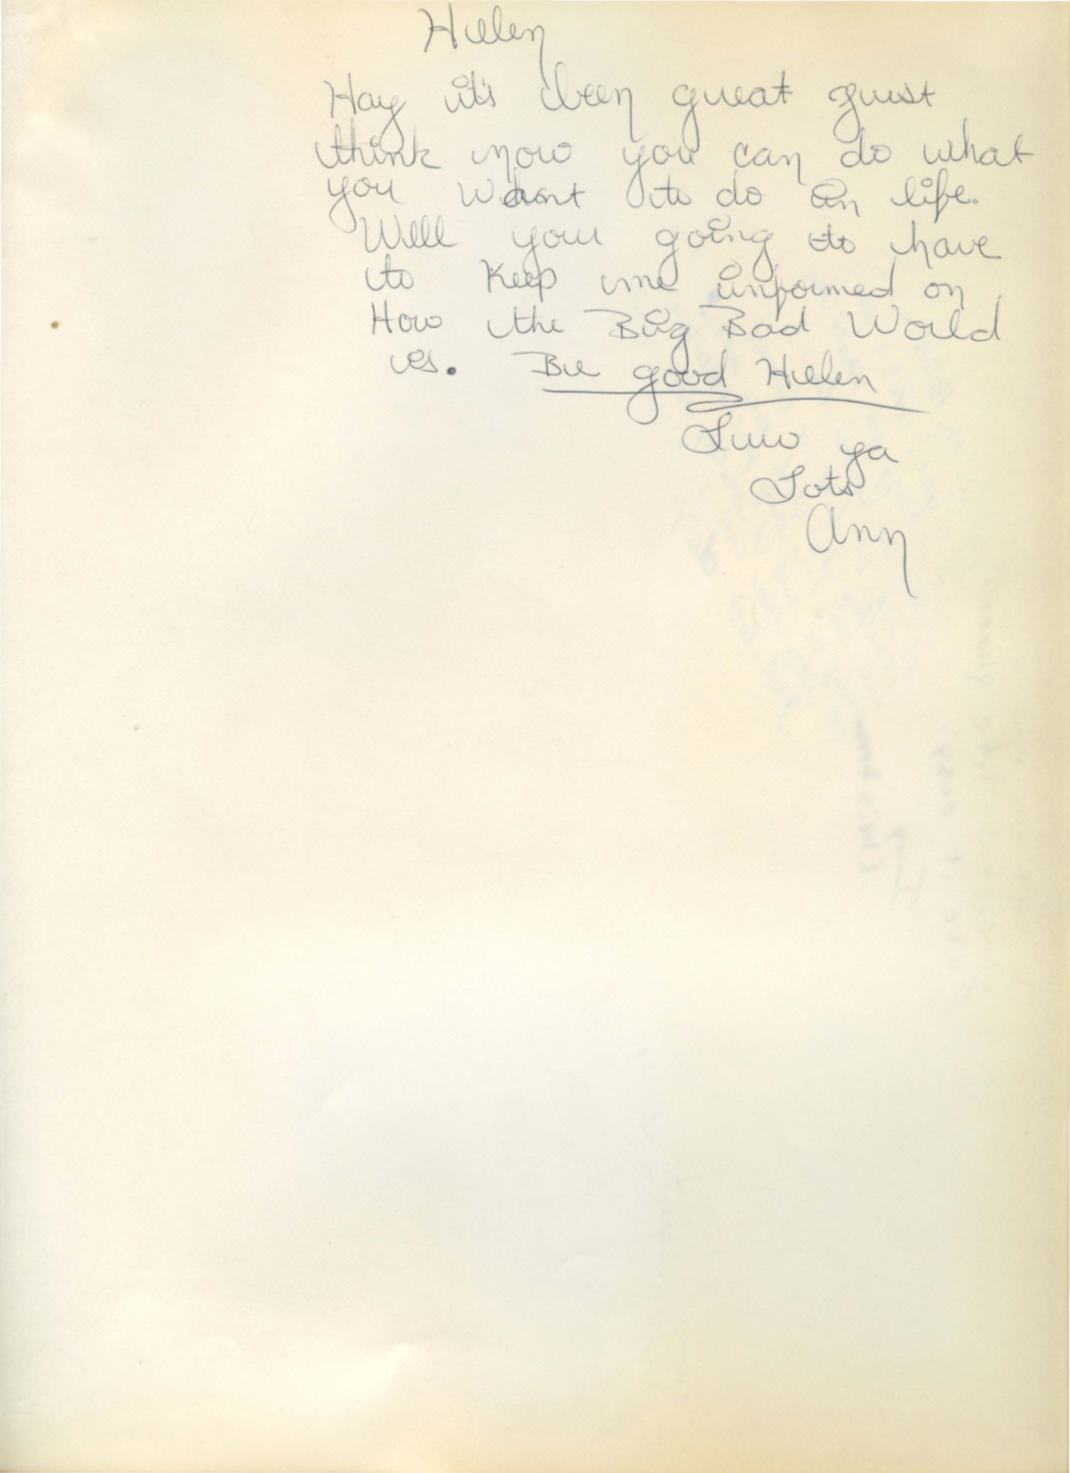 Helen
Hay it's been great just
think now you can do what
you want to do in life.
Well your going to have
to keep me informed on
How the Big Bad World
is. Be good Helen
Luv ya
Lots
Ann